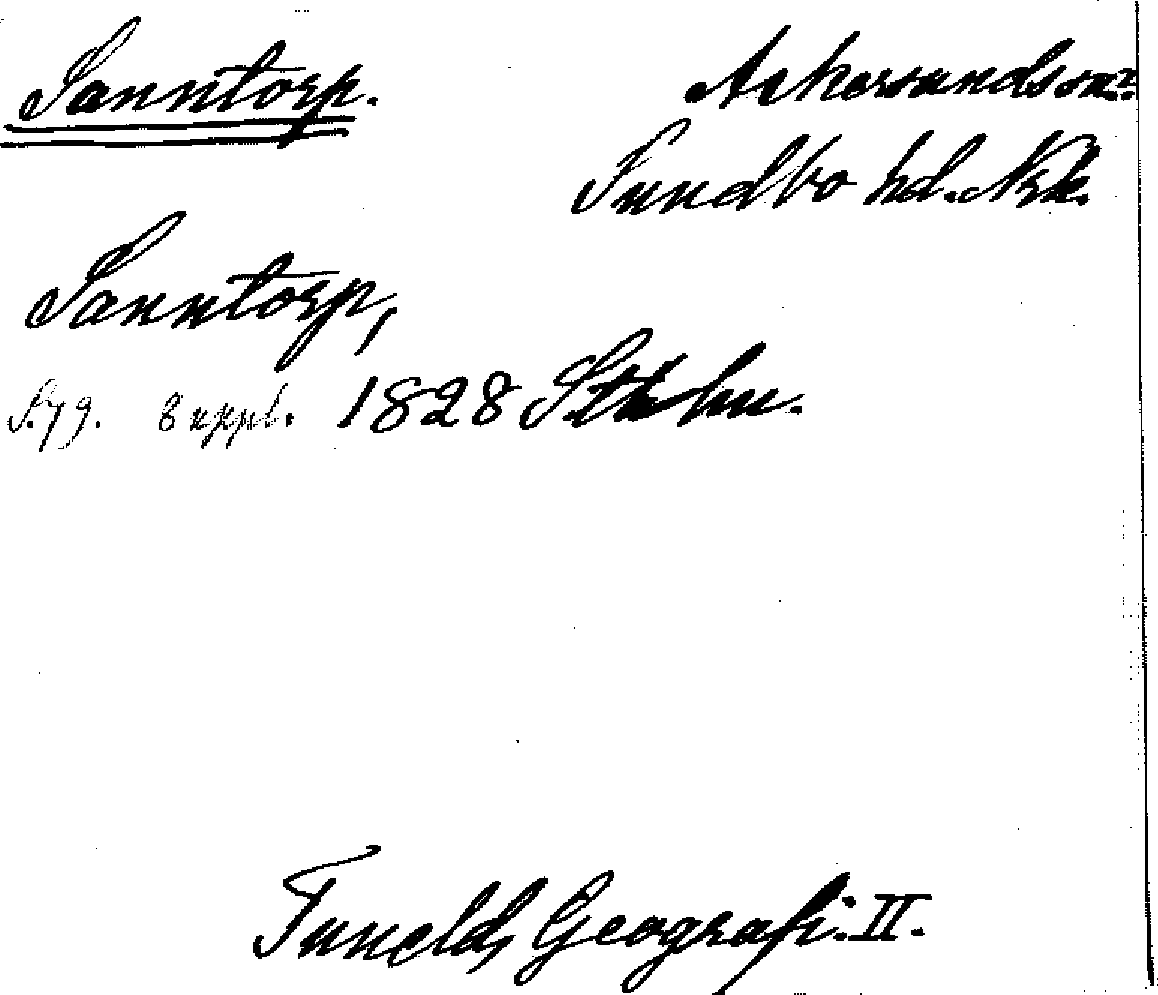 Sanntorp. Askersunds sn.
Sundbo hd. Nrk.
Sanntorp,
S.79. 8 uppl. 1828 Sthm.
Tunelds Geografi. II.